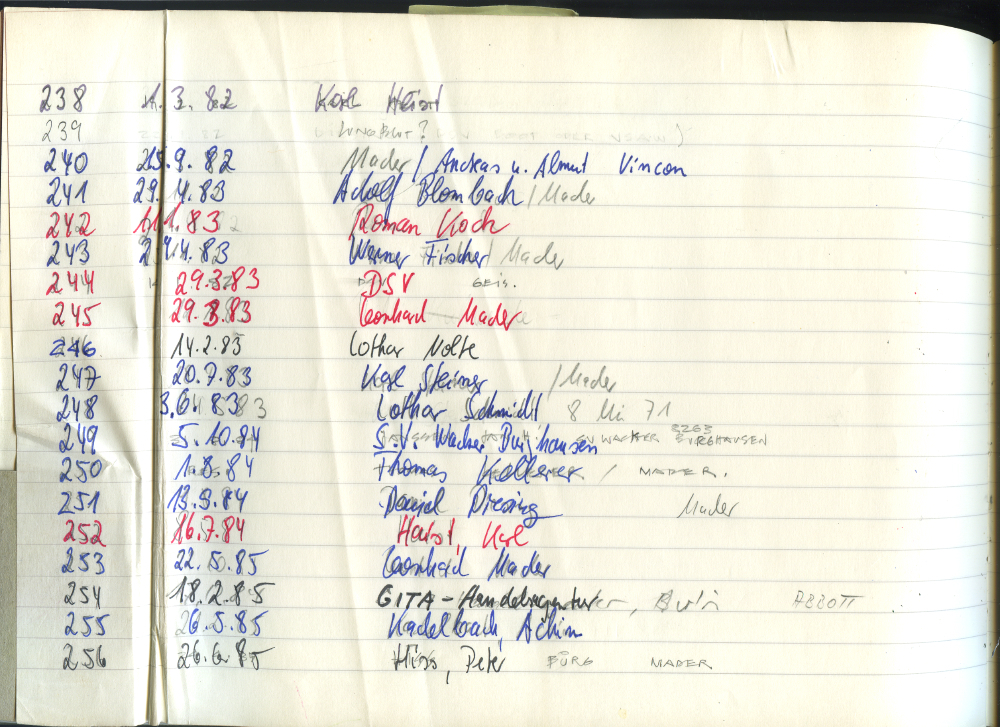 238 1.3.82 Karl Heist
239
240 25.9.82 Mader / Andreas u. Almut Vincon
241 29.4.83 Adolf Blombach / Mader
242 11.1.83 Roman Koch
243 29.4.83 Werner Fischer / Mader
244 29.3.83 DSV GEIS.
245 29.3.83 Leonhard Mader
246 14.2.83 Lothar Nolte
247 20.7.83 Karl Steiner / Mader
248 83 Lothar Schmidt 8 Mü 71
249 5.10.84 S.V. Wacker Burghausen SV WACKER 8263 BURGHAUSEN
250 1.8.84 Thomas Kellerer / MADER.
251 13.9.84 Daniel Diesing Mader
252 16.7.84 Heist, Karl
253 22.5.85 Leonhard Mader
254 18.2.85 GITA-Handelsagentur, Berlin ABBOTT
255 26.5.85 Kadelbach, Achim
256 26.6.85 Hirss, Peter BÜRG MADER